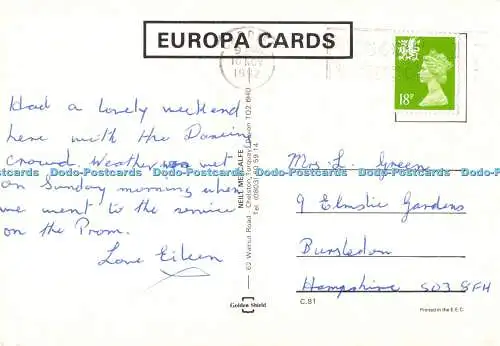 EUROPA CARDS
10 NOV
1992
18P
Had a lovely weekend
here with the Dancing
crowd. Weather was wet
on Sunday morning when
we went to the service
on the Prom.
Love Eileen
NEIL METCALFE
62 Walnut Road Chelston, Torquay, Devon TQ2 6HU
Tel. (0803) 60 59 14
Mrs. L. Green
9 Elmslie Gardens
Bursledon
Hampshire SO3 8FH
Golden Shield
C.81
Printed in the E.E.C.
Dodo-Postcards Dodo-Postcards Dodo-Postcards Dodo-Postcards